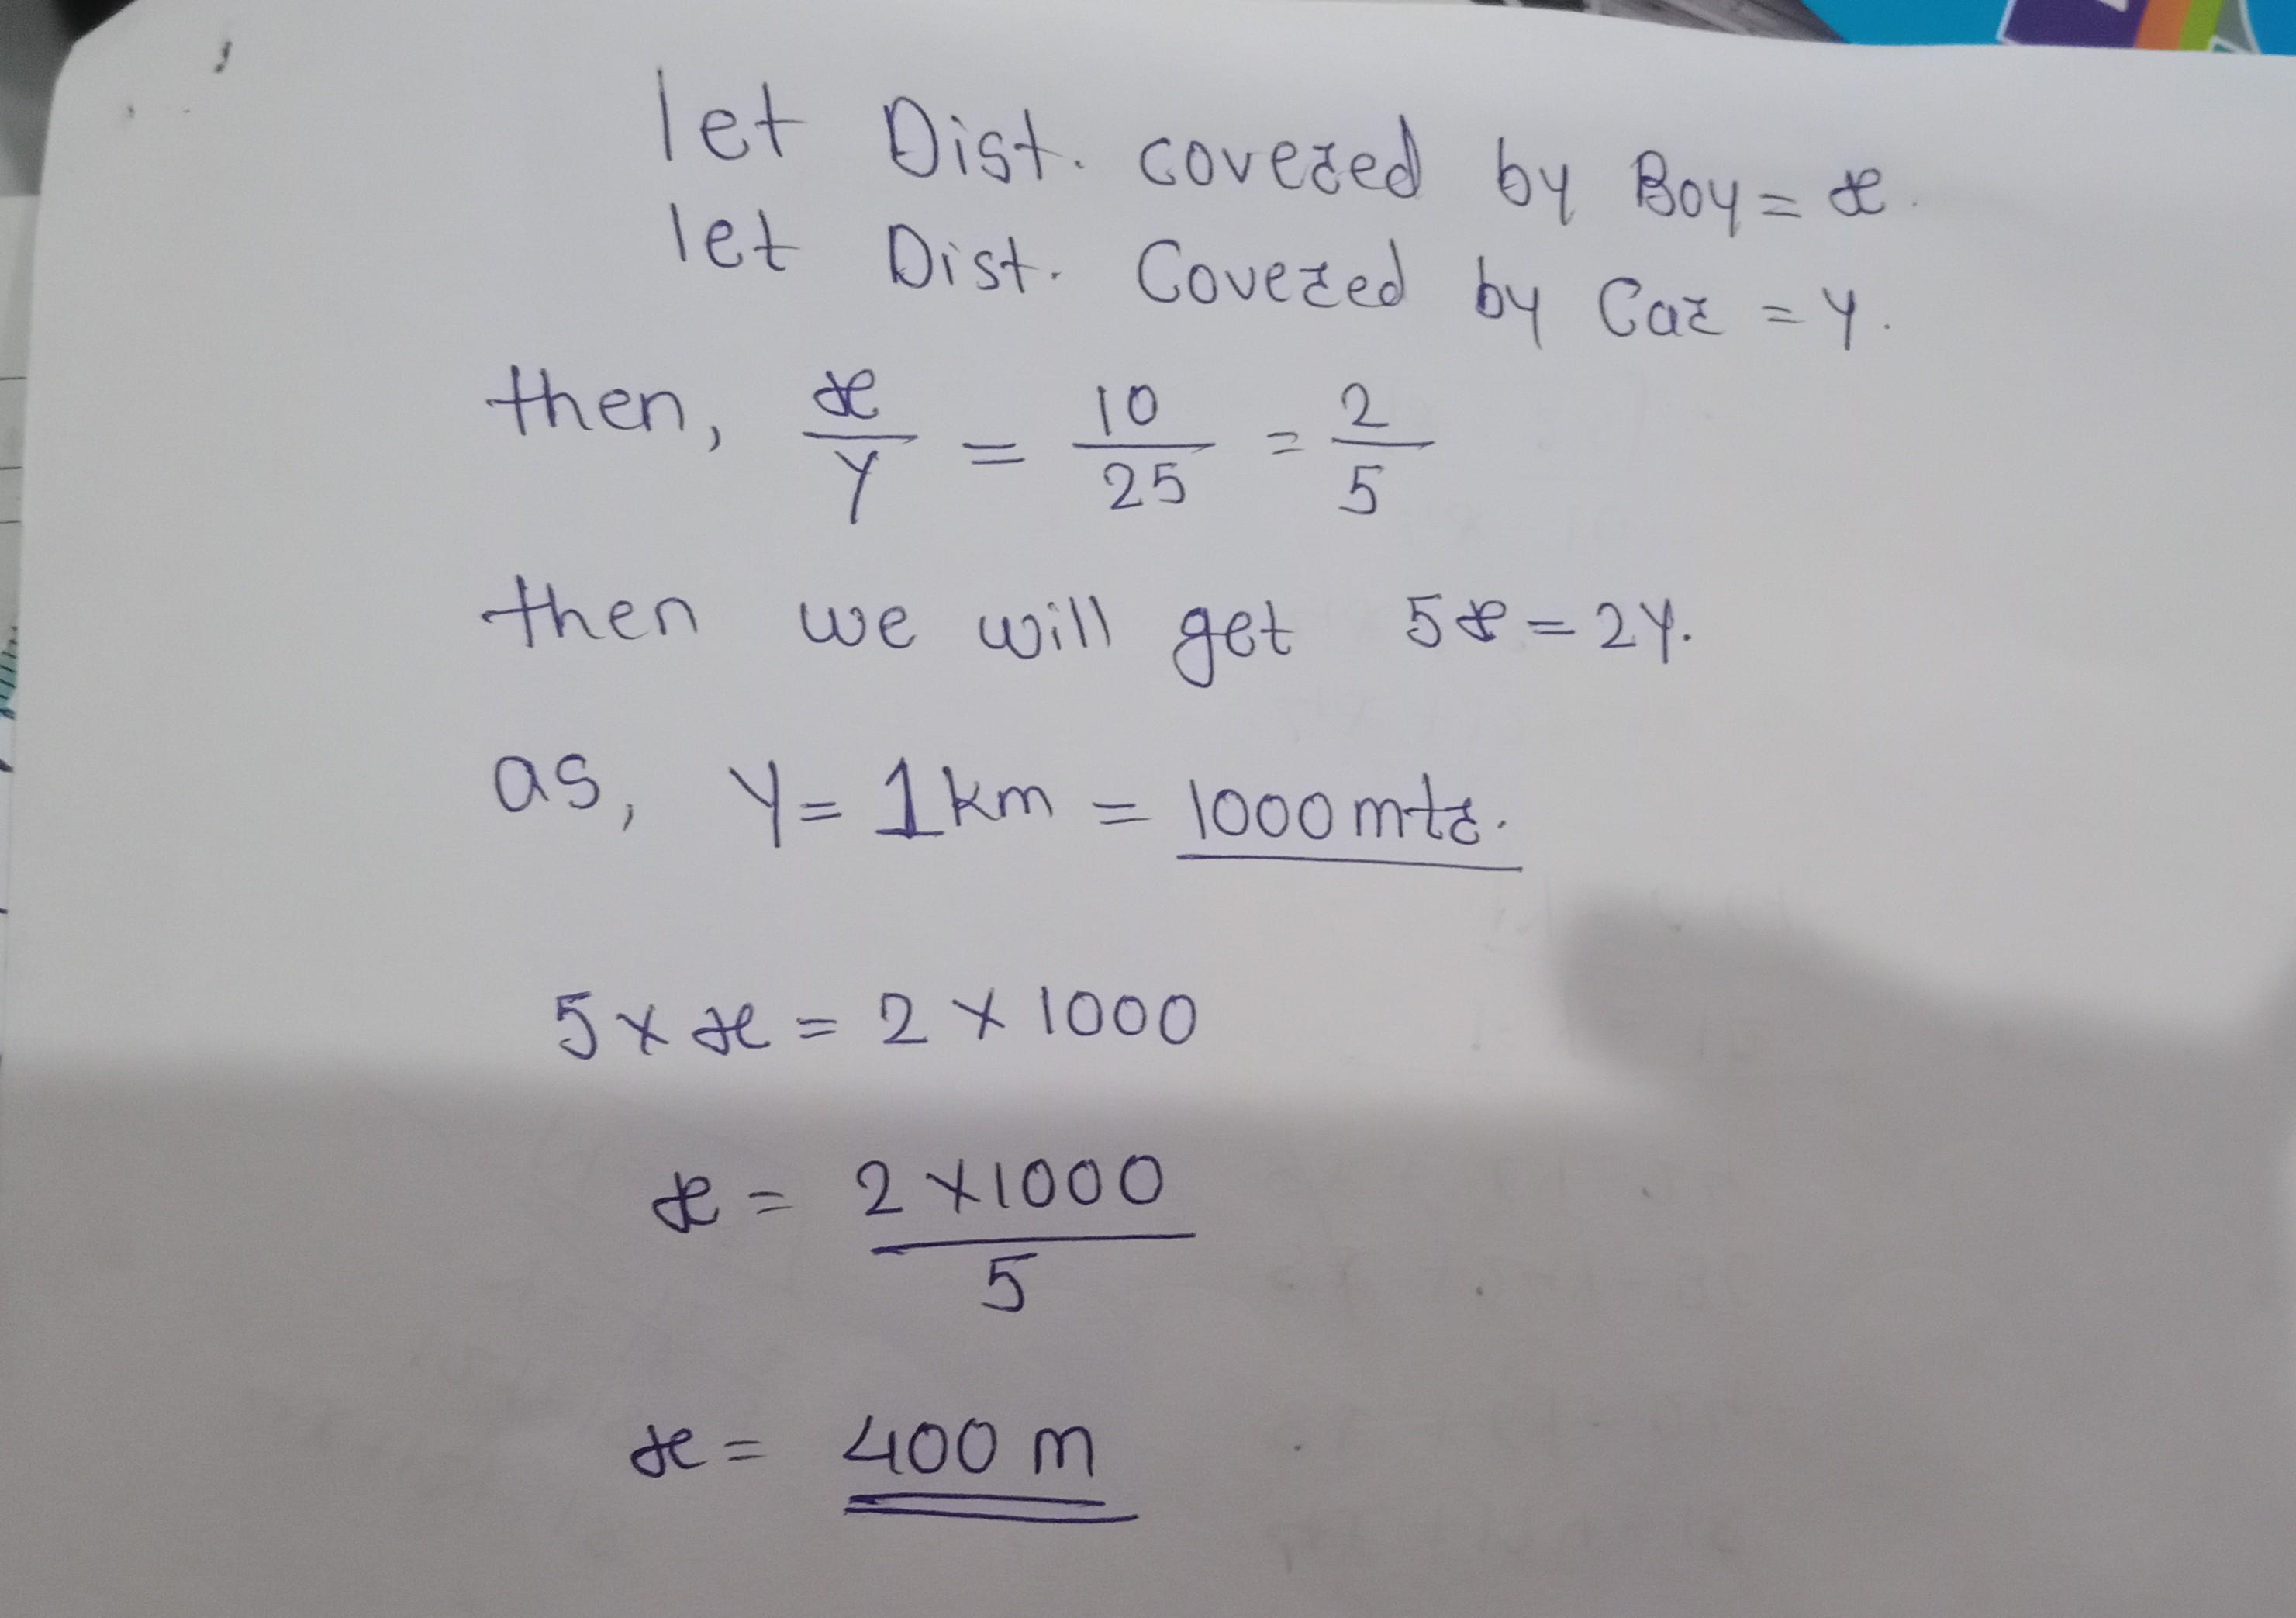 let Dist. covered by Boy = x.
let Dist. Covered by Car = y.
then, x/y = 10/25 = 2/5
then we will get 5x = 2y.
as, y = 1 km = 1000 mtr.
5 × x = 2 × 1000
x = 2 × 1000 / 5
x = 400 m